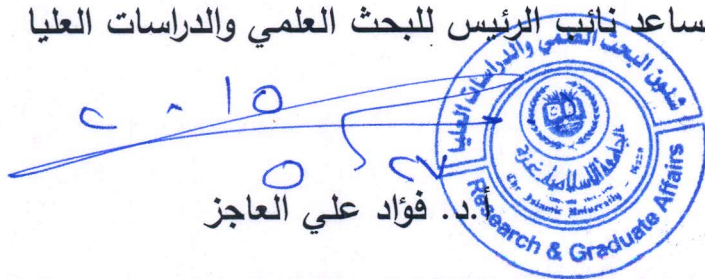 ساعد نائب الرئيس للبحث العلمي والدراسات العليا
شئون البحث العلمي والدراسات العليا
الجامعة الإسلامية غزة
The Islamic University - Gaza
Research & Graduate Affairs
أ.د. فؤاد علي العاجز